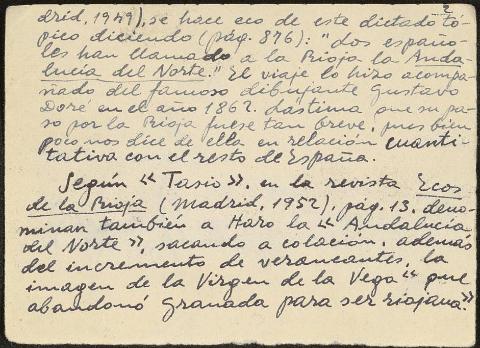 2
drid, 1949), se hace eco de este dictado tó-
pico diciendo (pág. 876): "dos españo-
les han llamado a la Rioja la Anda-
lucía del Norte." El viaje lo hizo acompa-
ñado del famoso dibujante Gustavo
Doré en el año 1862. Lástima que su pa-
so por la Rioja fuese tan breve, pues bien
poco nos dice de ella en relación cuanti-
tativa con el resto de España.
Según "Tasio", en la revista Ecos
de la Rioja (Madrid, 1952), pág. 13, deno-
minan también a Haro la "Andalucía
del Norte", sacando a colación, además
del incremento de veraneantes, la
imagen de la Virgen de la Vega "que
abandonó Granada para ser riojana."